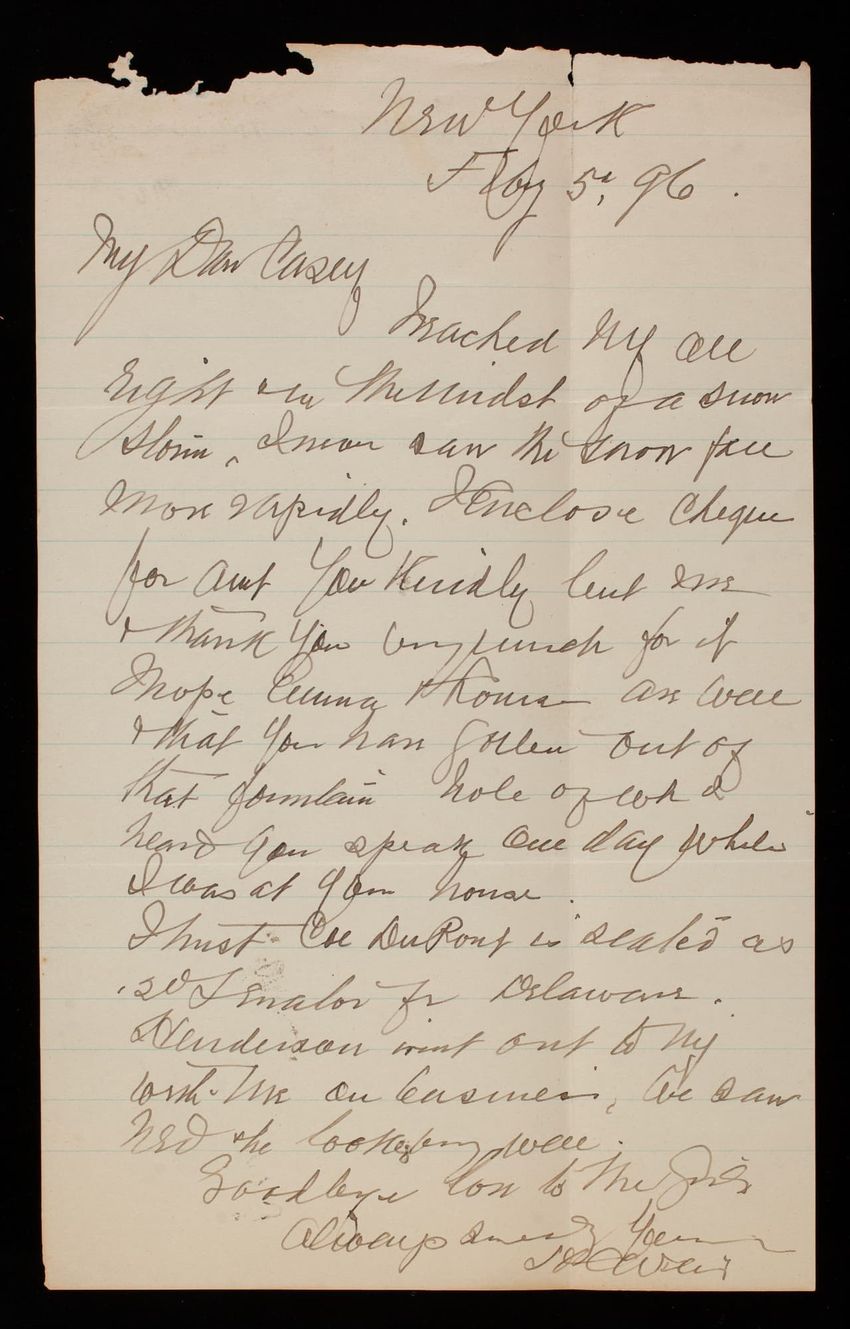 New York
Feby 5, 96.
My Dear Casey
I reached NY all
right & in the midst of a snow
storm, I never saw the snow fall
more rapidly. I Enclose cheque
for amt you kindly lent me
& thank you very much for it
I hope Emma & are well
& that you have gotten out of
that fountain hole of wh I
heard you speak one day while
I was at your house.
I trust Col DuPont is seated as
2d Senator fr Delaware.
Henderson went out to NY
with me on business, We saw
Ned & he looked very well.
Goodbye love to the
Always Yours